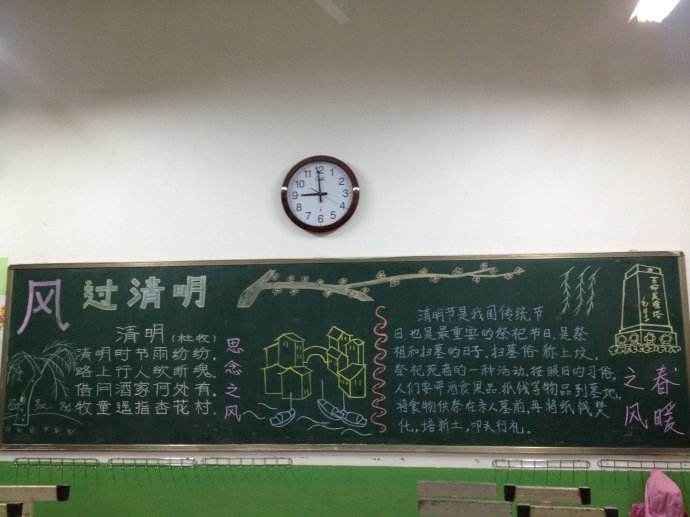 风过清明
清明(杜牧)
清明时节雨纷纷,
路上行人欲断魂.
借问酒家何处有,
牧童遥指杏花村.
思念之风
清明节是我国传统节
日也是最重要的祭祀节日,是祭
祖和扫墓的日子,扫墓俗称上坟,
祭祀死者的一种活动,按照旧的习俗,
人们要带酒食果品,纸钱等物品到墓地,
将食物供祭在亲人墓前,再将纸钱焚
化,培新土,叩头行礼.
春暖
之风
12
1
2
3
4
5
6
7
8
9
10
11